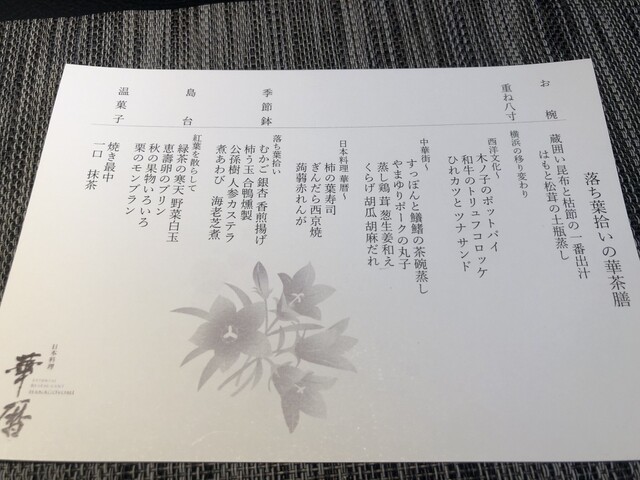 落ち葉拾いの華茶膳
お椀
蔵囲い昆布と枯節の一番出汁
はもと松茸の土瓶蒸し
重ね八寸
横浜の移り変わり
西洋文化〜
木ノ子のポットパイ
和牛のトリュフコロッケ
ひれカツとツナサンド
中華街〜
すっぽんと鱶鰭の茶碗蒸し
やまゆりポークの丸子
蒸し鶏 茸 葱生姜和え
くらげ 胡瓜 胡麻だれ
日本料理 華暦〜
柿の葉寿司
ぎんだら西京焼
蒟蒻赤れんが
季節鉢
落ち葉拾い
むかご 銀杏 香煎揚げ
柿う玉 合鴨燻製
公孫樹 人参カステラ
煮あわび 海老芝煮
島台
紅葉を散らして
緑茶の寒天 野菜白玉
恵壽卵のプリン
秋の果物いろいろ
栗のモンブラン
温菓子
焼き最中
一口 抹茶
日本料理
華暦